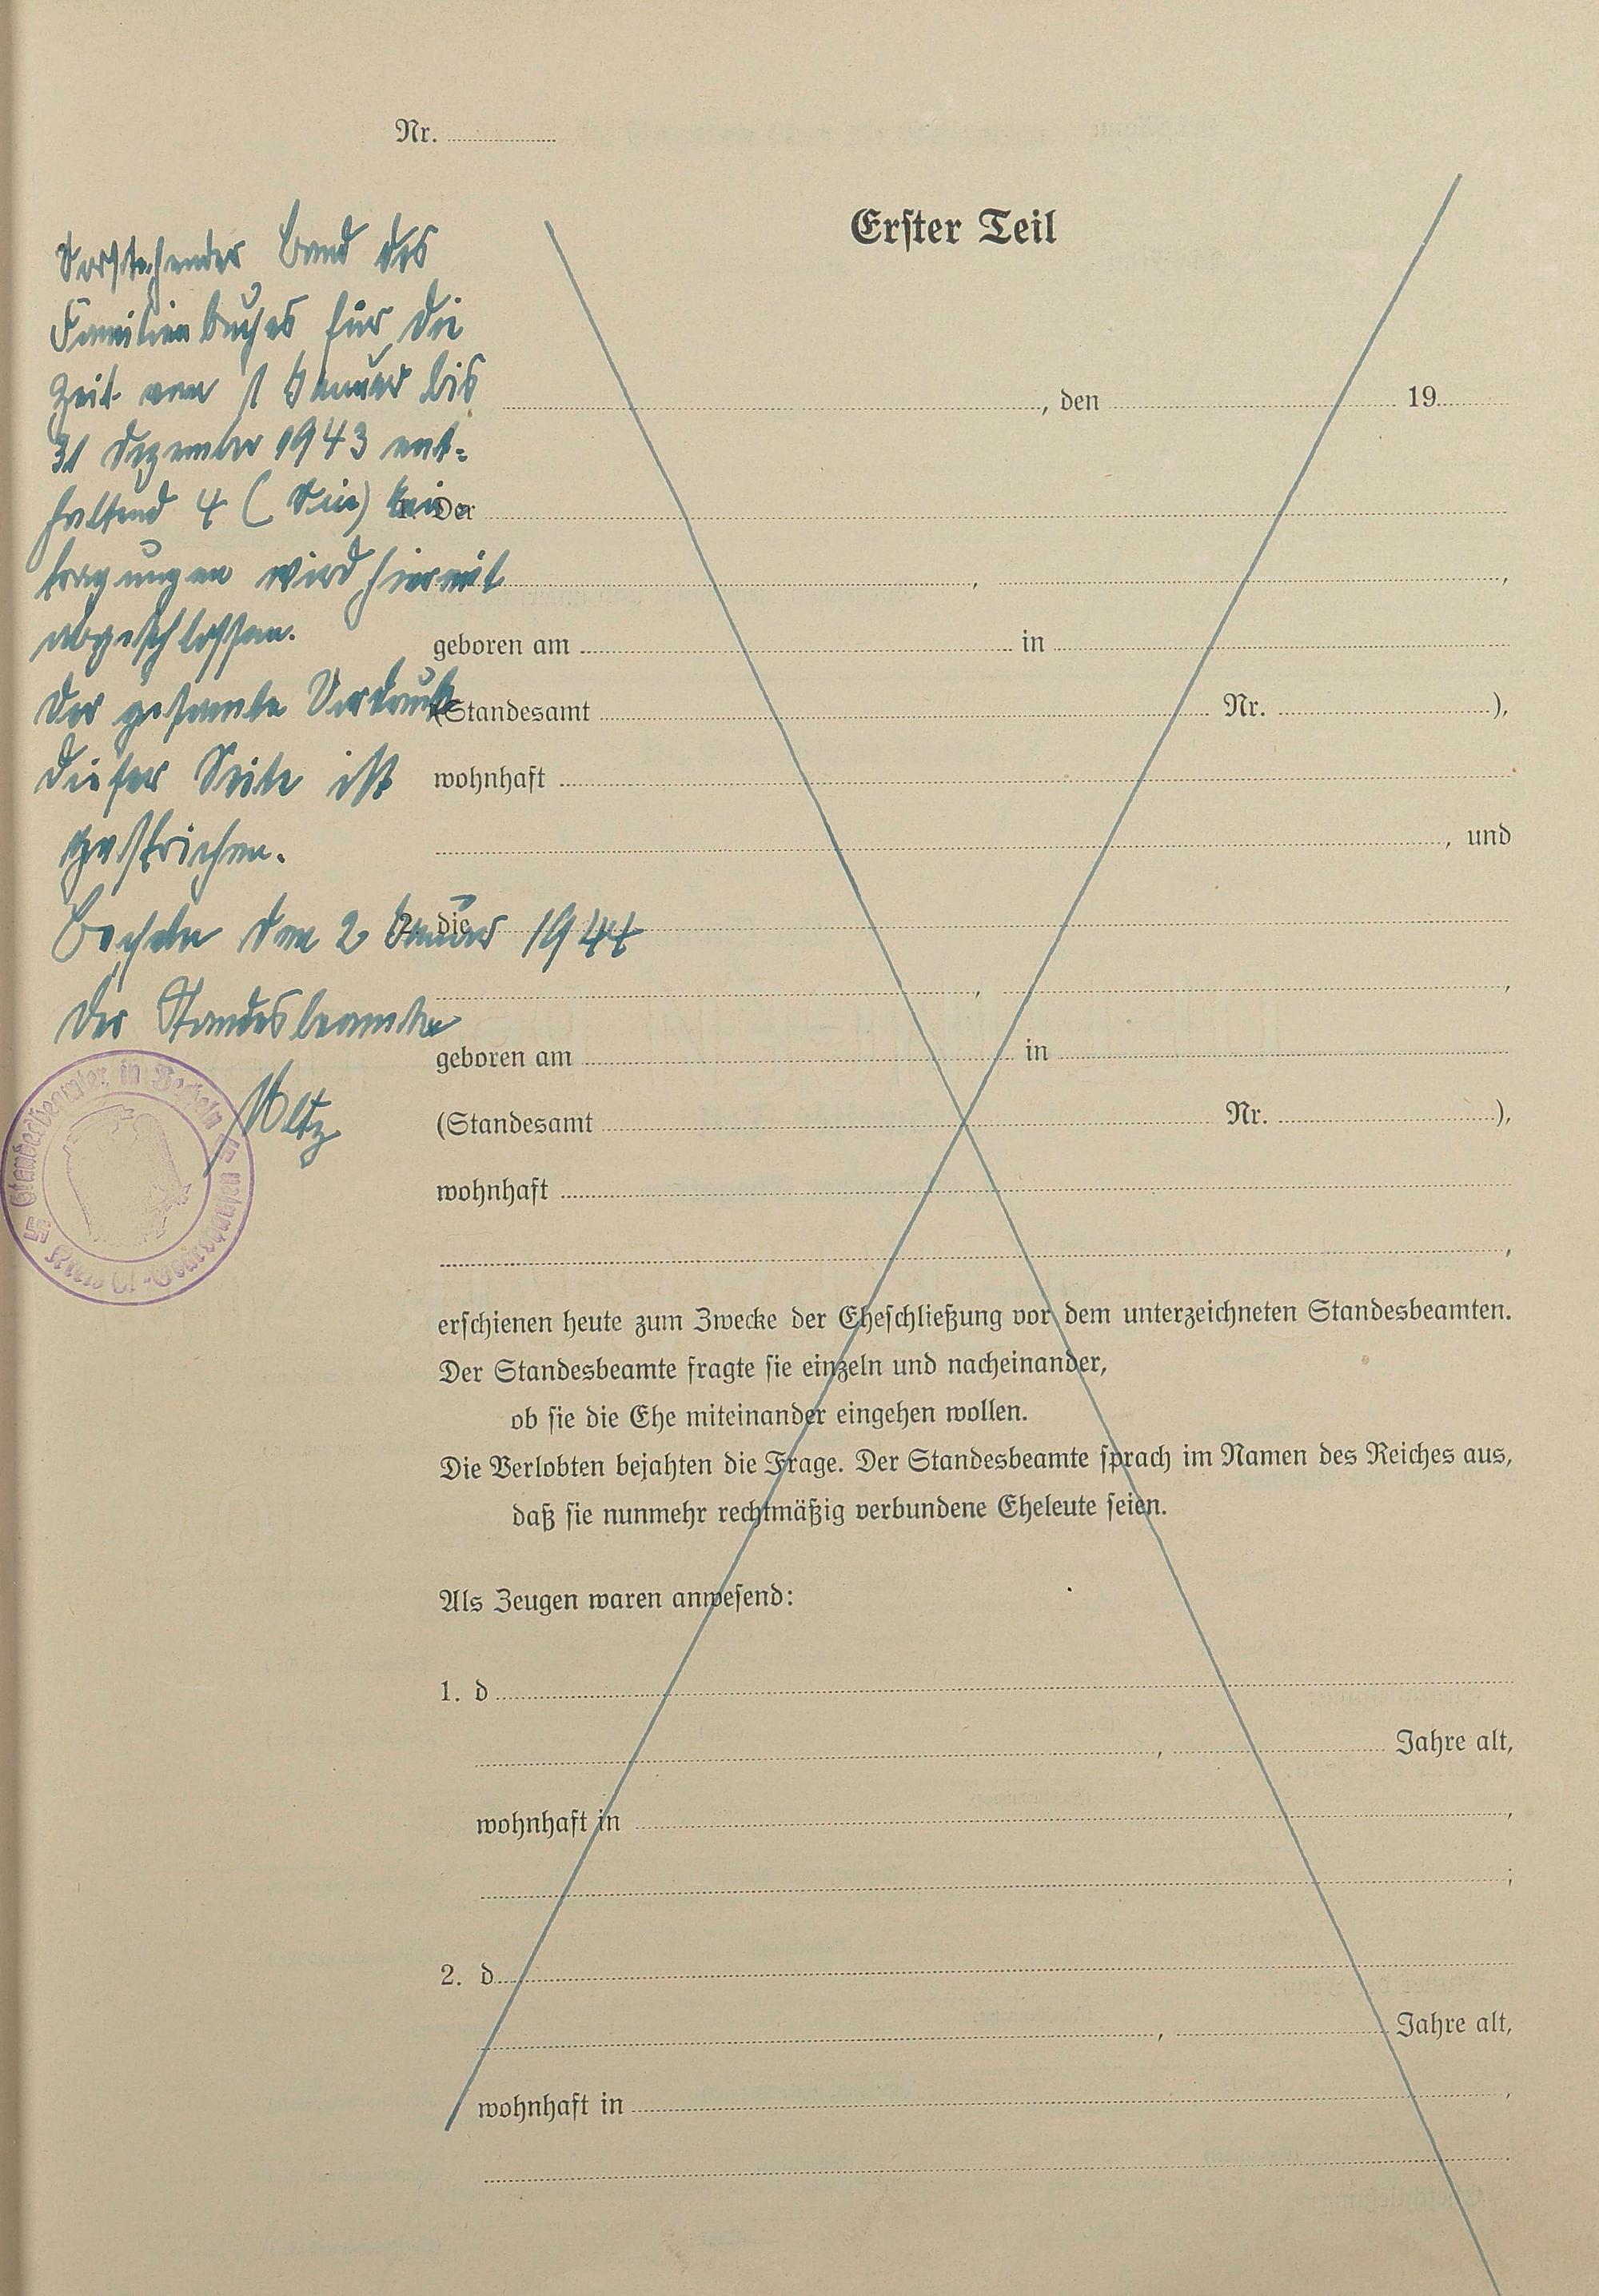 Nr.
Erster Teil
Vorstehender Band des
Familienbuches für die
Zeit vom 1 Januar bis
31 Dezember 1943 ent-
haltend 4 (Vier) Ein-
tragungen wird hiermit
abgeschlossen.
Der gesamte Vordruck
dieser Seite ist
gestrichen.
Becheln den 2 Januar 1944
Der Standesbeamte
Standesbeamter in Becheln
, den 19
Der
, ,
geboren am in
(Standesamt Nr. ),
wohnhaft
, und
2. die
, ,
geboren am in
(Standesamt Nr. ),
wohnhaft
,
erschienen heute zum Zwecke der Eheschließung vor dem unterzeichneten Standesbeamten.
Der Standesbeamte fragte sie einzeln und nacheinander,
ob sie die Ehe miteinander eingehen wollen.
Die Verlobten bejahten die Frage. Der Standesbeamte sprach im Namen des Reiches aus,
daß sie nunmehr rechtmäßig verbundene Eheleute seien.
Als Zeugen waren anwesend:
1. d
, Jahre alt,
wohnhaft in ,
;
2. d
, Jahre alt,
wohnhaft in ,